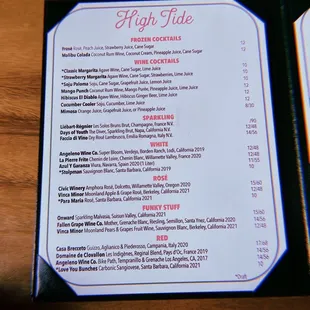 High Tide
FROZEN COCKTAILS
Frosé Rosé, Peach Juice, Strawberry Juice, Cane Sugar 12
Malibu Colada Coconut Rum Wine, Coconut Cream, Pineapple Juice, Cane Sugar 12
WINE COCKTAILS
*Classic Margarita Agave Wine, Cane Sugar, Lime Juice
*Strawberry Margarita Agave Wine, Cane Sugar, Strawberries, Lime Juice
*Suja Paloma Soju, Cane Sugar, Grapefruit Juice, Lemon Juice
Mango Punch Coconut Rum Wine, Mango Purée, Pineapple Juice, Lime Juice
Hibiscus El Diablo Agave Wine, Hibiscus Ginger Beer, Lime Juice
Cucumber Cooler Soju, Cucumber, Lime Juice
Mimosa Orange Juice, Grapefruit Juice, or Pineapple Juice
SPARKLING
Liebart-Régnier Les Soles Bruns Brut, Champagne, France N.V.
Days of Youth The Diver, Sparkling Brut, Napa, California N.V.
Faccia di Vino Dry Rosé Lambrusco, Emilia-Romagna, Italy N.V.
WHITE
Angeleno Wine Co. Super Bloom, Verdejo, Borden Ranch, Lodi, California 2019
La Pierre Frite Chenin de Loire, Chenin Blanc, France 2020
Azul Y Garanza Viura, Navarra, Spain 2020 (1 Liter)
*Stolpman Sauvignon Blanc, Santa Barbara, California 2021
ROSE
Civic Winery Amphora Rosé, Dolcetto, Willamette Valley, Oregon 2020 15/60
Vinca Minor Moonland Apple & Grape Rosé, Berkeley, California 2021 12/48
*Para Maria Rosé, Santa Barbara, California 2021 10
FUNKY STUFF
Onward Sparkling Malvasia, Suisun Valley, California 2021
Fallen Grape Wine Co. Mother, Grenache Blanc, Riesling, Semillon, Santa Ynez, California 2020
Vinca Minor Moonland Pears & Grapes Fruit Wine, Sauvignon Blanc, Berkeley, California 2021
RED
Casa Brecceto Guizzo, Aglianico & Piedirosso, Campania, Italy 2020
Domaine de Clovallon Les Indigènes, Reginal Blend, Pays d'Oc, France 2019
Angeleno Wine Co. Bike Path, Tempranillo & Grenache Los Angeles, CA 2017
*Love You Bunches Carbonic Sangiovese, Santa Barbara, California 2021 10
*Draft